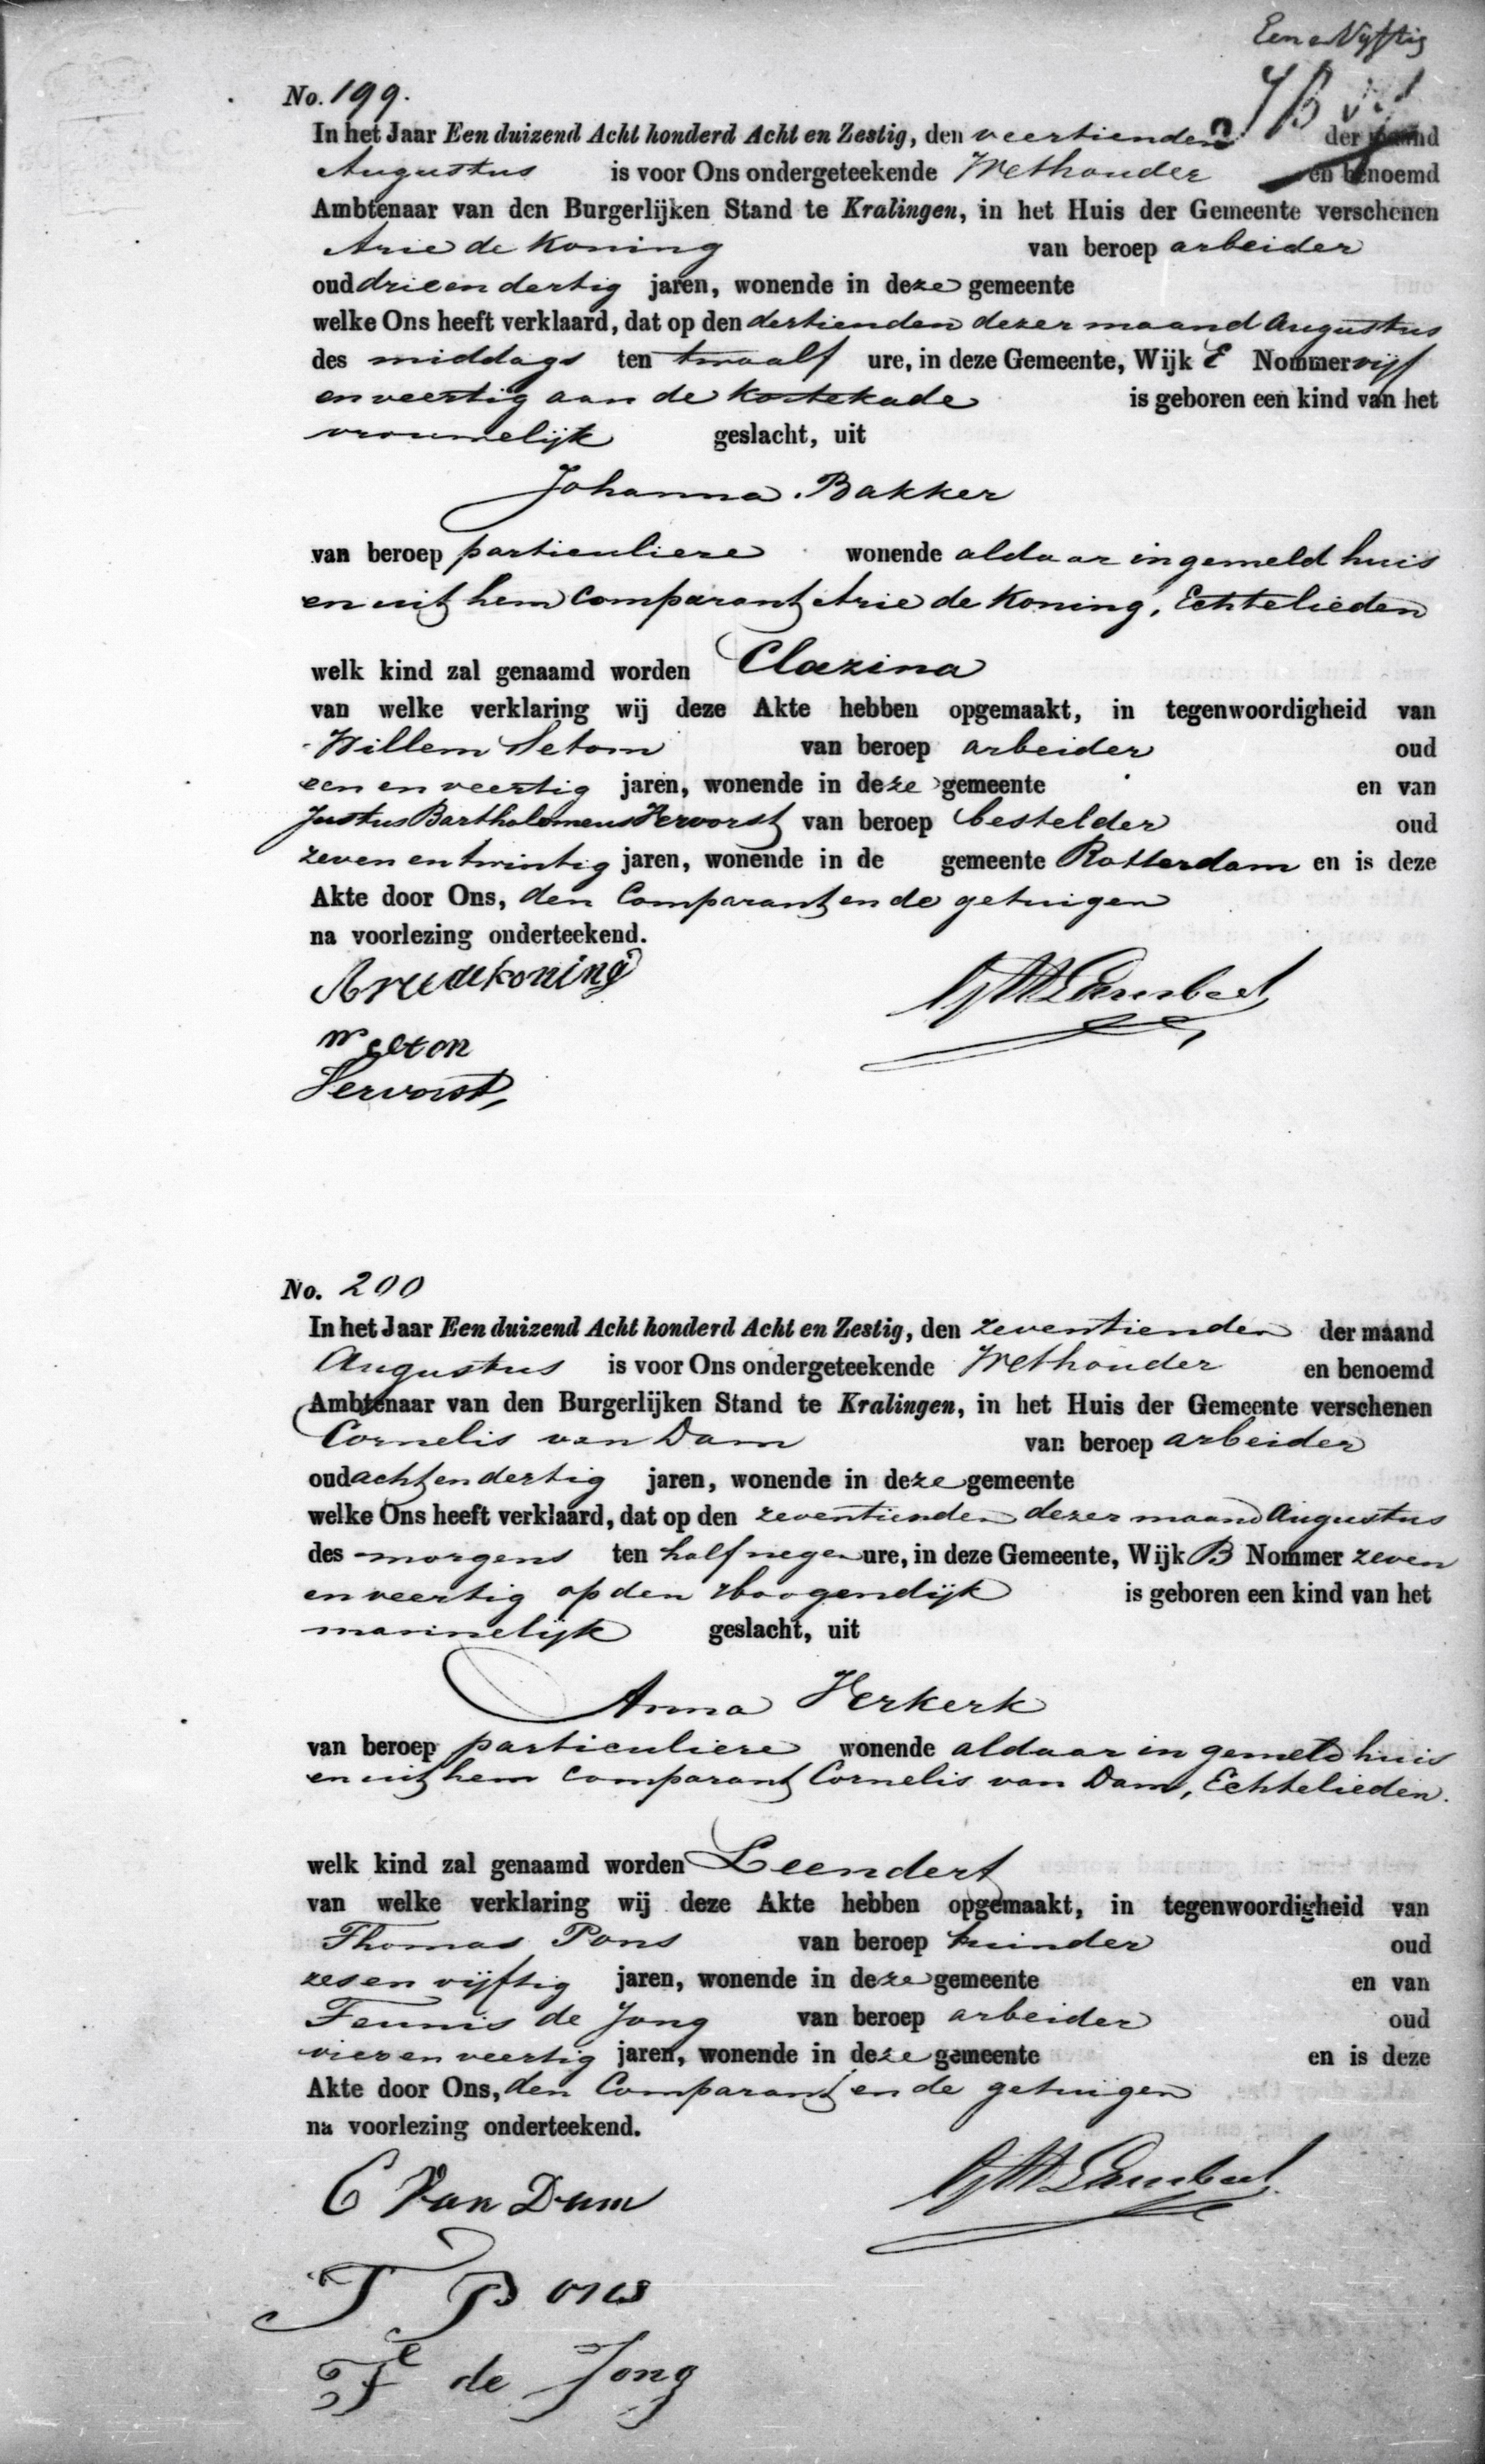 Een en Vyftig
No. 199.
In het Jaar Een duizend Acht honderd Acht en Zestig, den veertienden der maand
Augustus is voor Ons ondergeteekende Wethouder en benoemd
Ambtenaar van den Burgerlijken Stand te Kralingen, in het Huis der Gemeente verschenen
Arie de Koning van beroep arbeider
oud drie en dertig jaren, wonende in deze gemeente
welke Ons heeft verklaard, dat op den dertienden dezer maand Augustus
des middags ten twaalf ure, in deze Gemeente, Wijk E Nommer vijf
en veertig aan de Kortekade is geboren een kind van het
vrouwelijk geslacht, uit
Johanna Bakker
van beroep particuliere wonende aldaar in gemeld huis
en uit hem Comparant Arie de Koning, Echtelieden
welk kind zal genaamd worden Clazina
van welke verklaring wij deze Akte hebben opgemaakt, in tegenwoordigheid van
Willem Seton van beroep arbeider oud
een en veertig jaren, wonende in deze gemeente en van
Justus Bartholomeus Hervorst van beroep besteller oud
zeven en twintig jaren, wonende in de gemeente Rotterdam en is deze
Akte door Ons, den Comparant en de getuigen
na voorlezing onderteekend.
Arie de koning
W Seton
Hervorst
No. 200
In het Jaar Een duizend Acht honderd Acht en Zestig, den zeventienden der maand
Augustus is voor Ons ondergeteekende Wethouder en benoemd
Ambtenaar van den Burgerlijken Stand te Kralingen, in het Huis der Gemeente verschenen
Cornelis van Dam van beroep arbeider
oud acht en dertig jaren, wonende in deze gemeente
welke Ons heeft verklaard, dat op den zeventienden dezer maand Augustus
des morgens ten half negen ure, in deze Gemeente, Wijk B Nommer zeven
en veertig op den 's Hoogendijk is geboren een kind van het
mannelijk geslacht, uit
Anna Verkerk
van beroep particuliere wonende aldaar in gemeld huis
en uit hem comparant Cornelis van Dam, Echtelieden.
welk kind zal genaamd worden Leendert
van welke verklaring wij deze Akte hebben opgemaakt, in tegenwoordigheid van
Thomas Pons van beroep tuinder oud
zes en vijftig jaren, wonende in deze gemeente en van
Teunis de Jong van beroep arbeider oud
vier en veertig jaren, wonende in deze gemeente en is deze
Akte door Ons, den Comparant en de getuigen
na voorlezing onderteekend.
C Van Dam
T Pons
Te de Jong